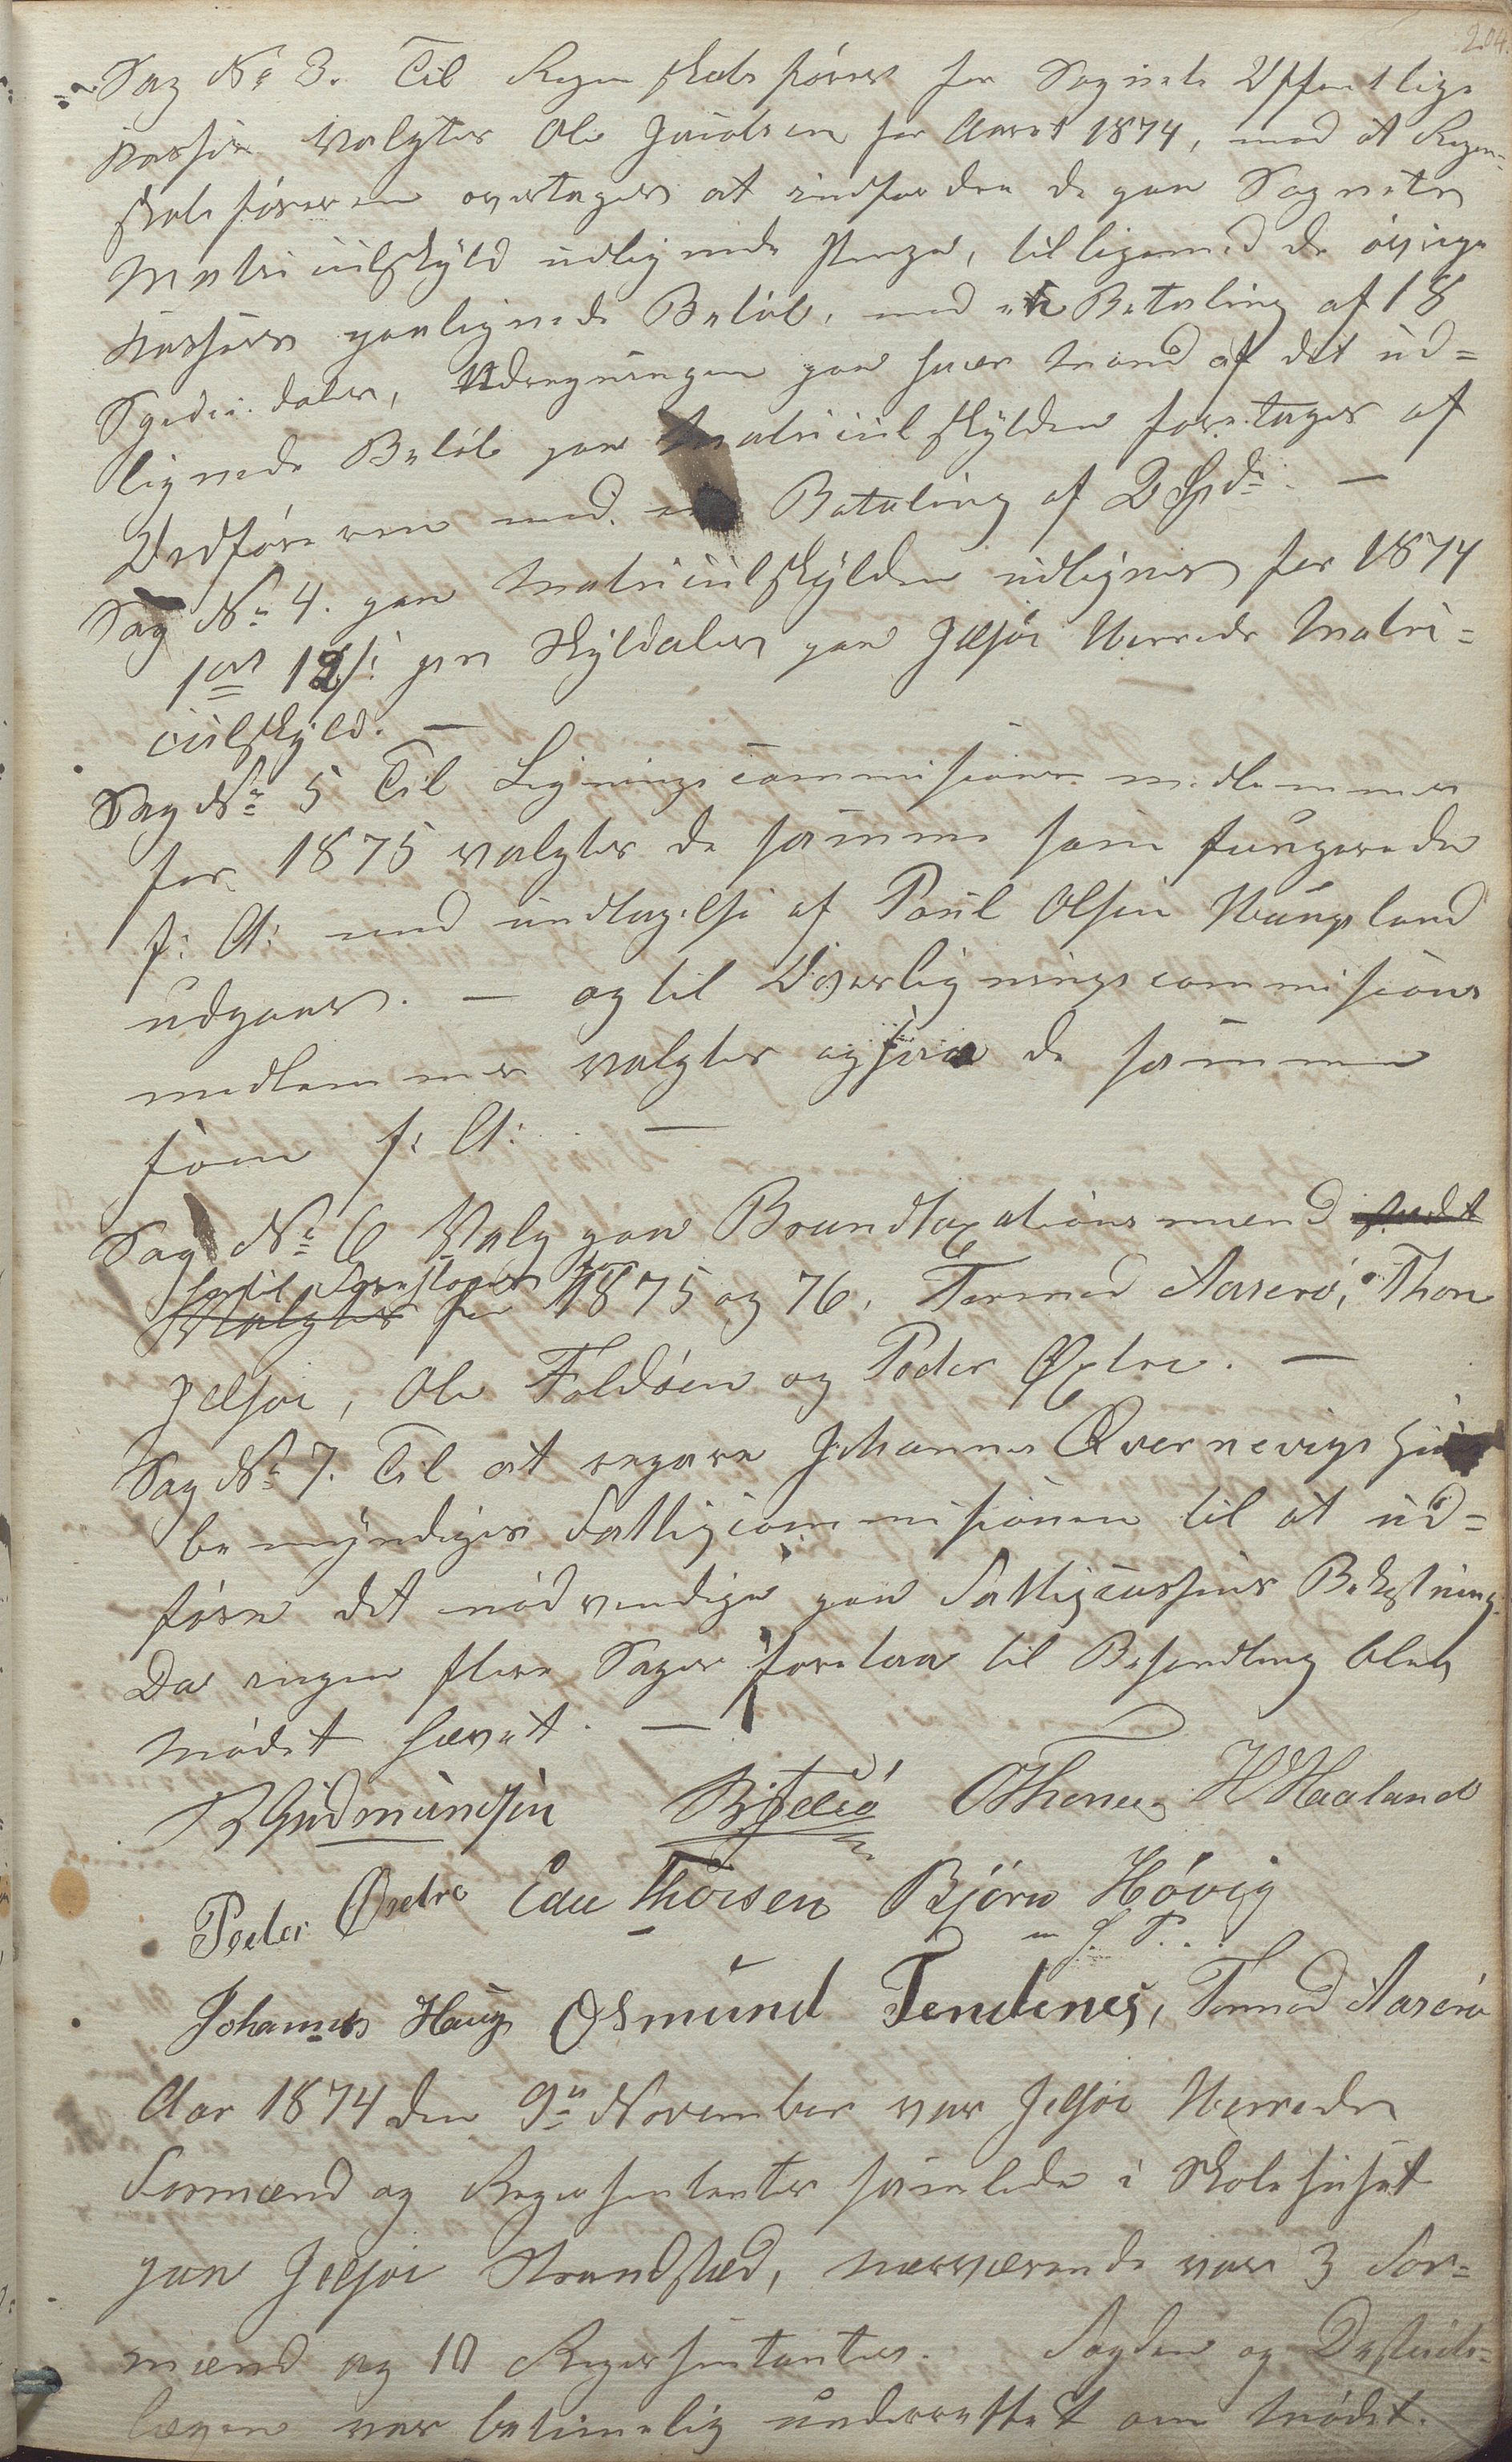 204.
Sag No 3. Til Regenskabsförer for Sognets Offentlige
Kasser valgtes Ole Jacobsen for Aaret 1874, med at Regen-
skabsföreren overtager at indfordre de paa Sognets
Matriculskyld udlignede Penge, tilligemed de övrige
Kassers paalignede Belöb, med en Betaling af 18
Speciedaler, Udregningen paa hver Mand af det ud=
lignede Belöb paa Matriculskylden foretages af
Ordföreren med en Betaling af 2 Spd. —
Sag No 4. paa Matriculskylden udlignes for 1874
1 ort 12 s: pr Skylddaler paa Jelsöe Herreds Matri=
culskyld. —
Sag No 5 Til Ligningscommissions medlemmer
for 1875 valgtes de samme som fungerede
f: A: med undtagelse af Poul Olsen Vaugsland
udgaar. — og til Overligningscommissions
medlemmer valgtes ogsaa de samme
som f: A: —
Sag No 6 Valg paa Brandtaxationsmænd
hertil Foreslaaes for
Valgtes for 1875 og 76, Tormod Aaserö, Thore
Jelsöe, Ole Foldöen og Peder Øxtre. —
Sag No 7. Til at repare Johannes Qvernevigs Huus
bemyndiges Fattigcommissionen til at ud=
före det nödvendige paa Fattigcassens Bekostning.
Da ingen flere Sager forelaa til Behandling blev
Mödet hævet. —
B Gudmundsen B Jelsö O Thorsen H Haaland
Peder Øxtre Edu Thorsen Björn Hövig
m. f. P..
Johannes Haug Osmund Tendenes, Tormod Aaserö
Aar 1874 den 9de November var Jelsöe Herreds
Formænd og Repræsentanter samlede i Skolehuset
paa Jelsöe Strandsted, nærværende var 3 For=
mænd og 10 Repræsentanter. Fogden og Destricts=
lægen var betimelig underrettet om Mödet.